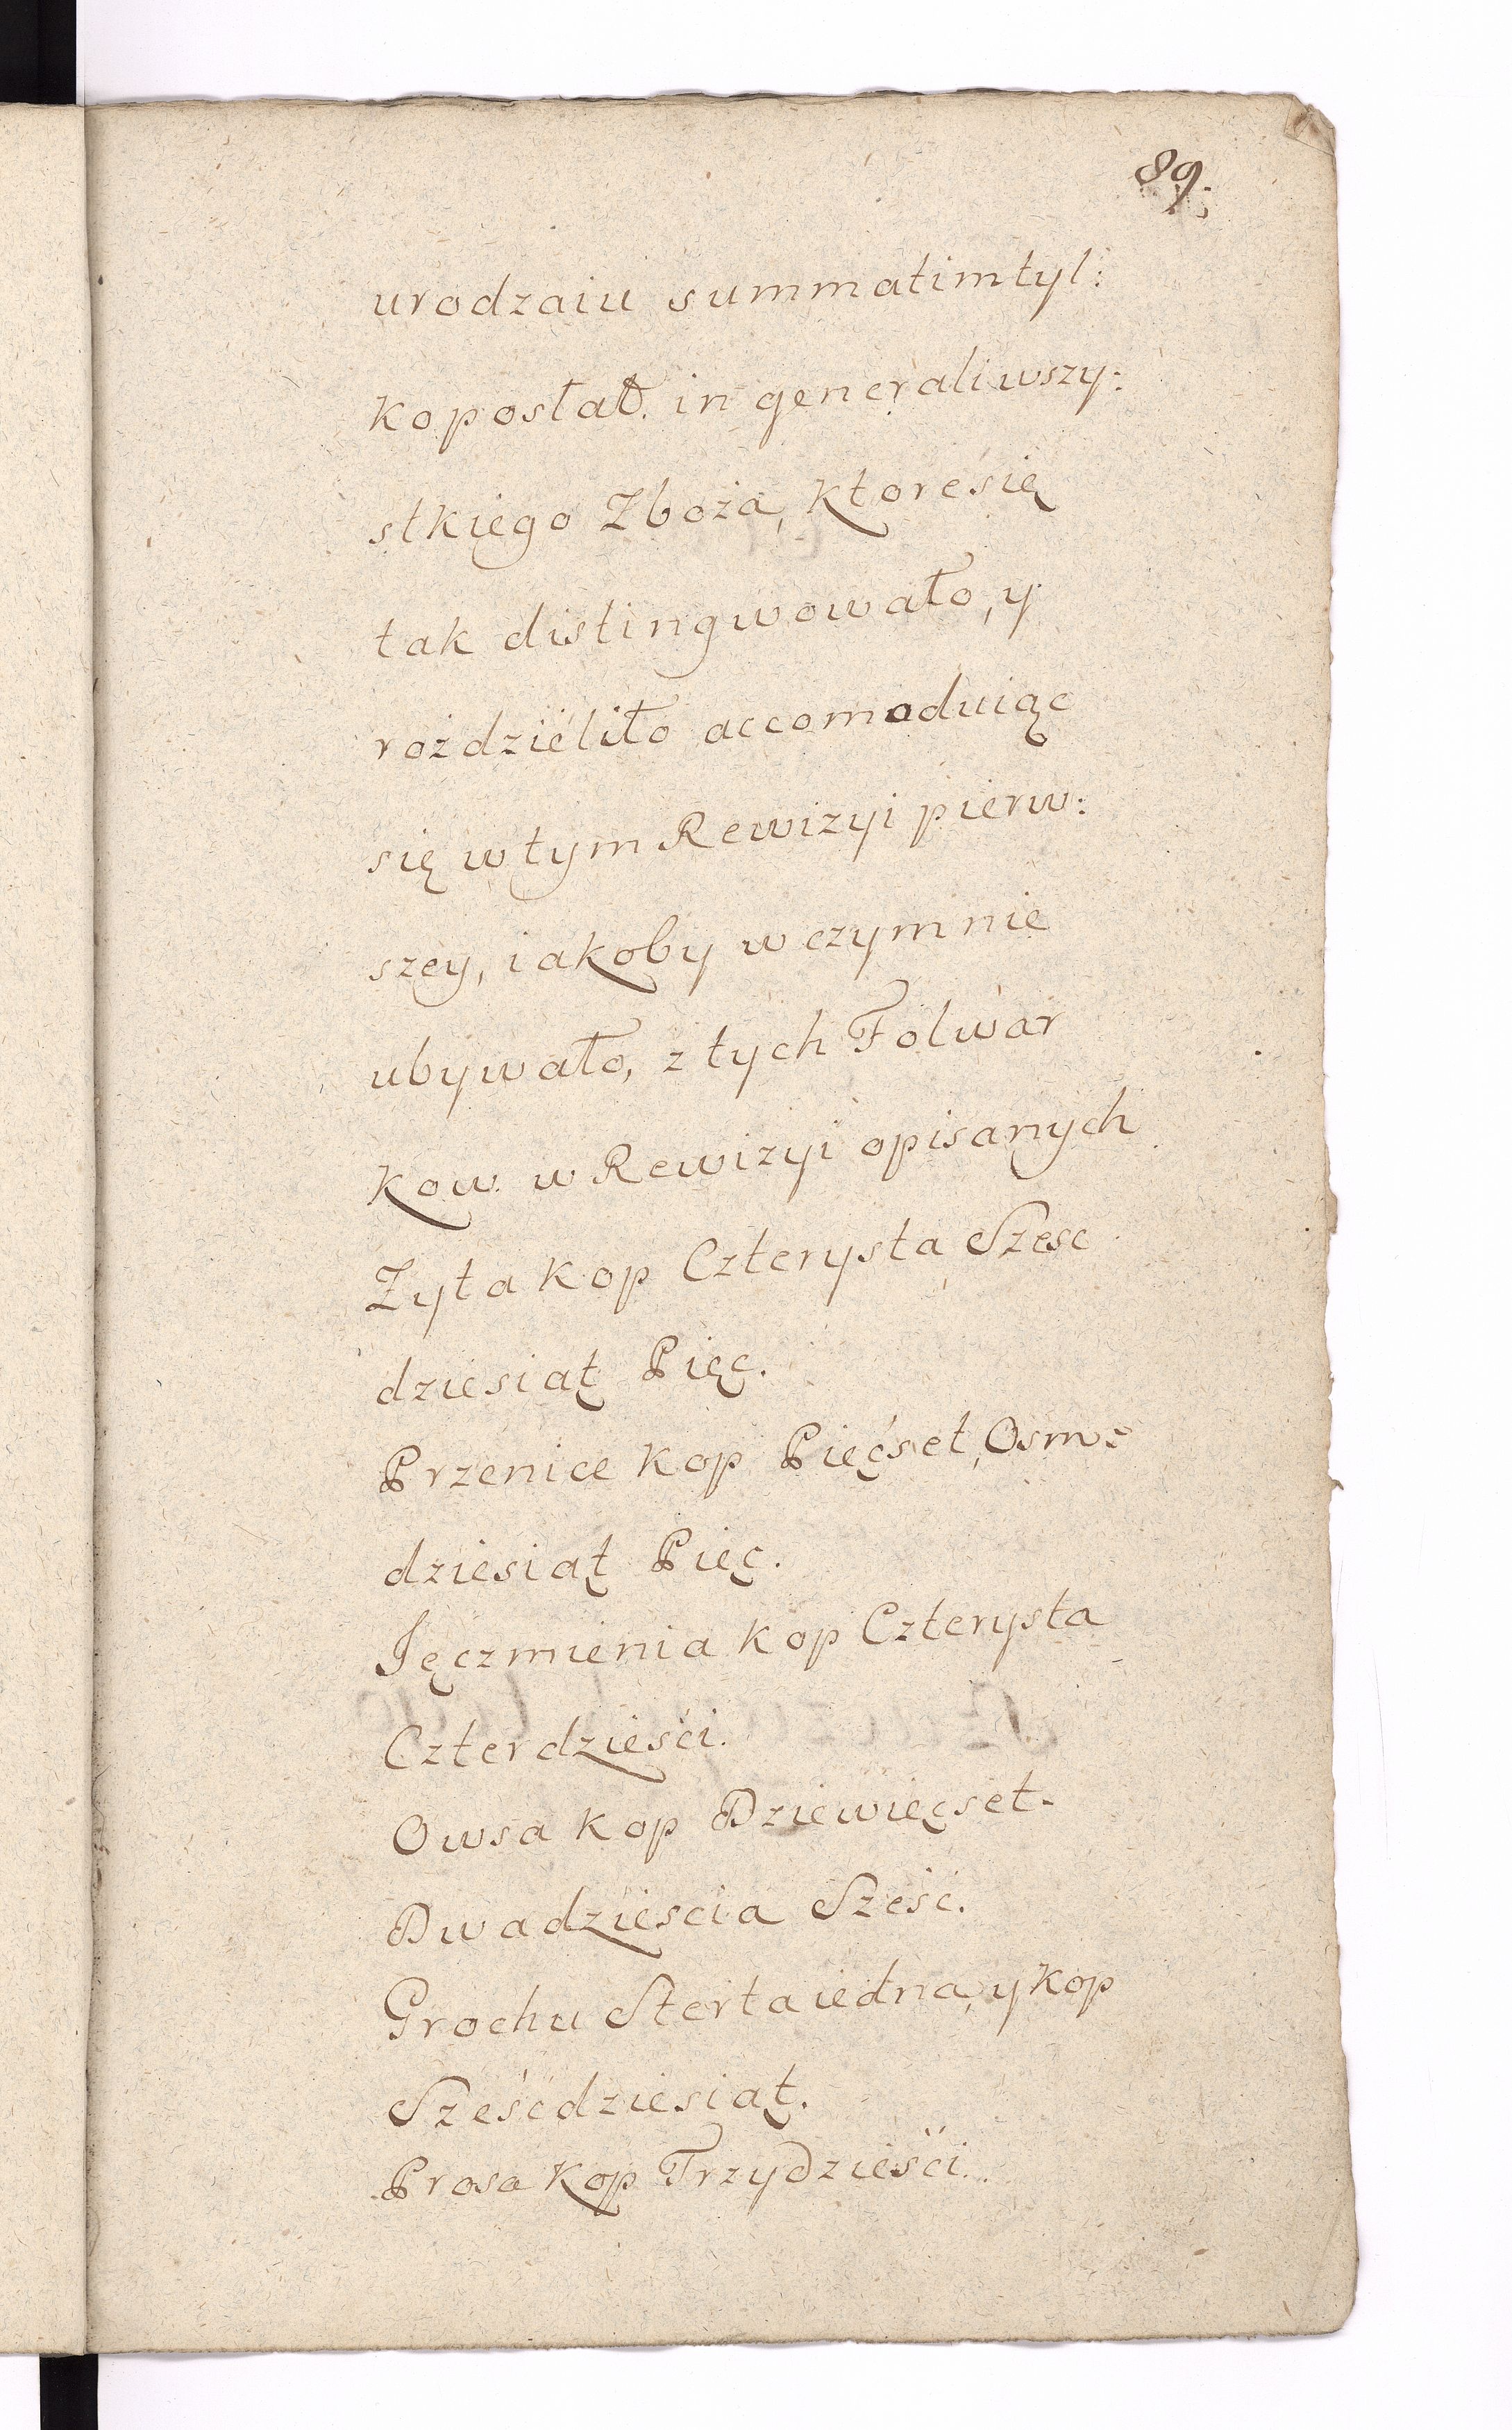 89.
urodzaiu summatim tyl:
ko posłał. in generali wszy:
stkiego Zboża, ktore się
tak distingwowało, y
rozdzieliło accomoduiąc
się w tym Rewizyi pierw:
szey, iakoby w czym nie
ubywało, z tych Folwar
kow. w Rewizyi opisanych
Zyta kop Czterysta Szesc
dziesiąt Pięc.
Przenice kop Pięćset, Osm:
dziesiąt Pięc.
Jęczmienia kop Czterysta
Czterdzieści.
Owsa kop Dziewięcset.
Dwadziescia Sześć.
Grochu Sterta iedna, y kop
Sześćdziesiąt.
Prosa kop Trzydzieści.